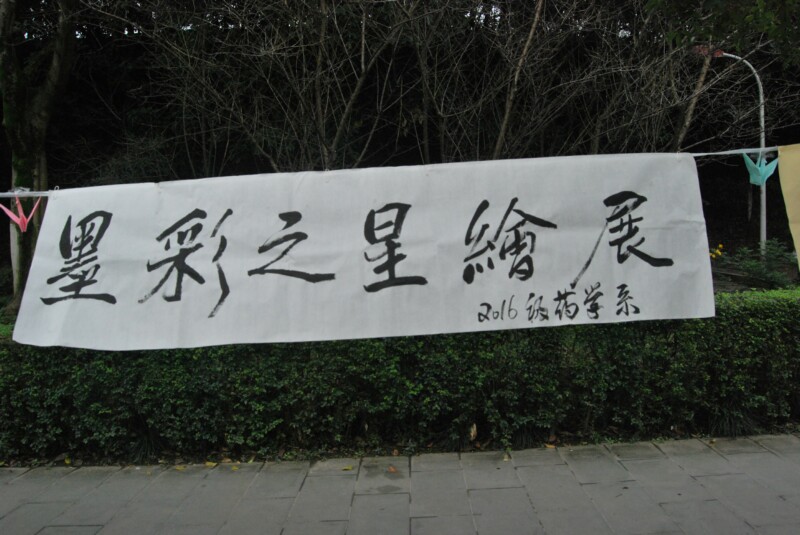 墨彩之星繪展
2016级药学系